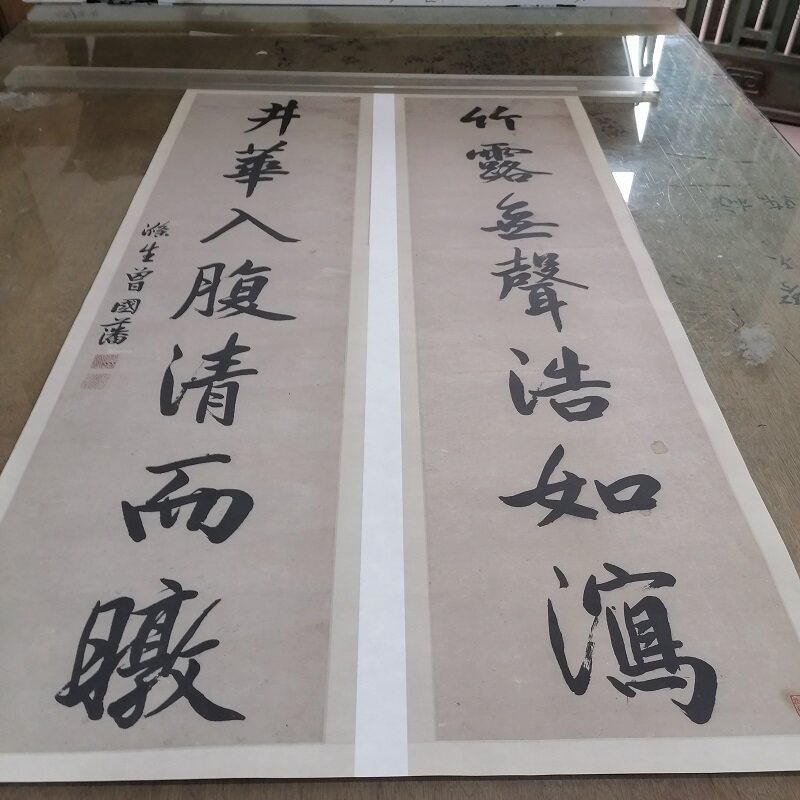 竹露無聲浩如瀉
井華入腹清而暾
滌生曾國藩